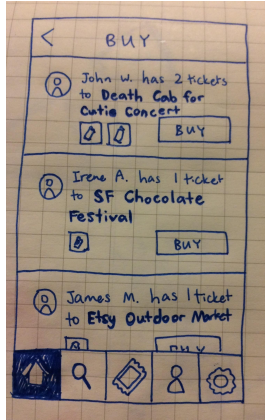 BUY
John W. has 2 tickets
to Death Cab for
Cutie concert
BUY
Irene A. has 1 ticket
to SF Chocolate
Festival
BUY
James M. has 1 ticket
to Etsy Outdoor Market
BUY